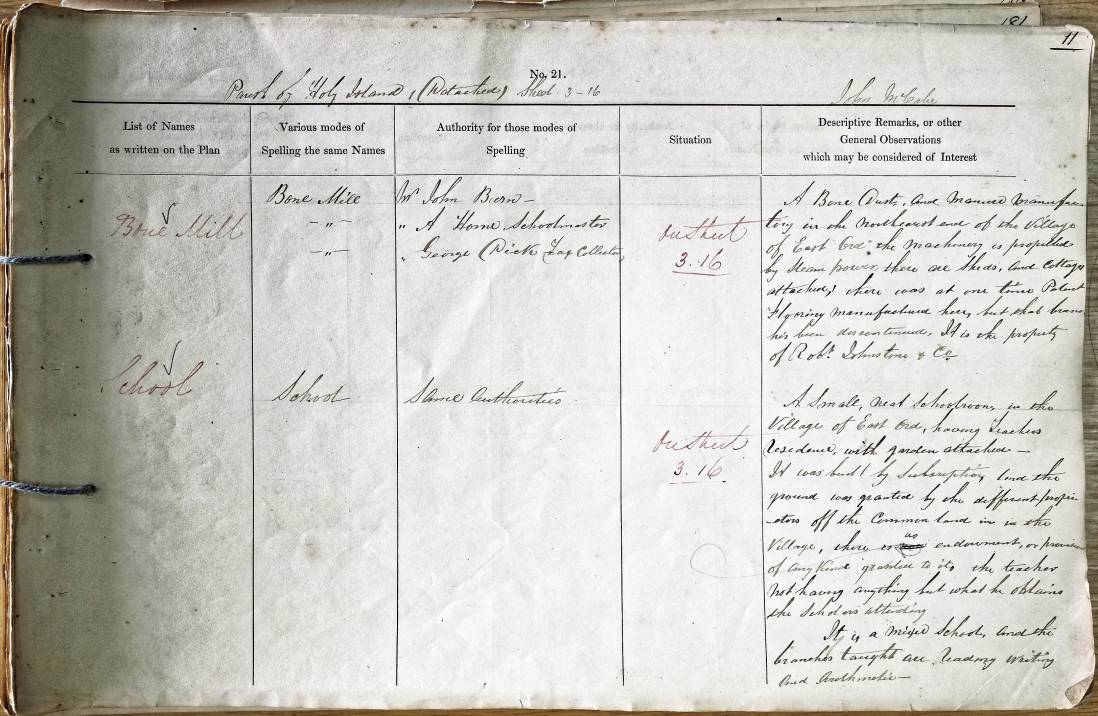 181
11
No. 21.
Parish of Holy Island, (Detached) Sheet 3-16
John McCabe
List of Names
as written on the Plan
Various modes of
Spelling the same Names
Authority for those modes of
Spelling
Situation
Descriptive Remarks, or other
General Observations
which may be considered of Interest
Bone Mill
Bone Mill
-„-
-„-
Mr John
„ A Home Schoolmaster
„ George Dick Tax Collector
On Sheet
3.16
A Bone Dust, and Manure Manufac-
tory in the Northeast end of the Village
of "East Ord" the Machinery is propelled
by Steam power, there are Sheds, and Cottages
attached, there was at one time Patent
Flooring manufactured here, but that bran
has been discontinued, It is the property
of Robt. Johnstone & Co.
School
School
Same Authorities
On Sheet
3.16
A Small, neat Schoolroom, in the
Village of East Ord, having teachers
residence, with garden attached —
It was built by Subscription, and the
ground was granted by the different propri
-etors off the Common land in in the
Village, there is no endowment, or provision
of any kind granted to it, the teacher
not having anything but what he obtains
the Scholars attending
It is a mixed School, and the
branches taught are reading Writing
and Arithmetic —